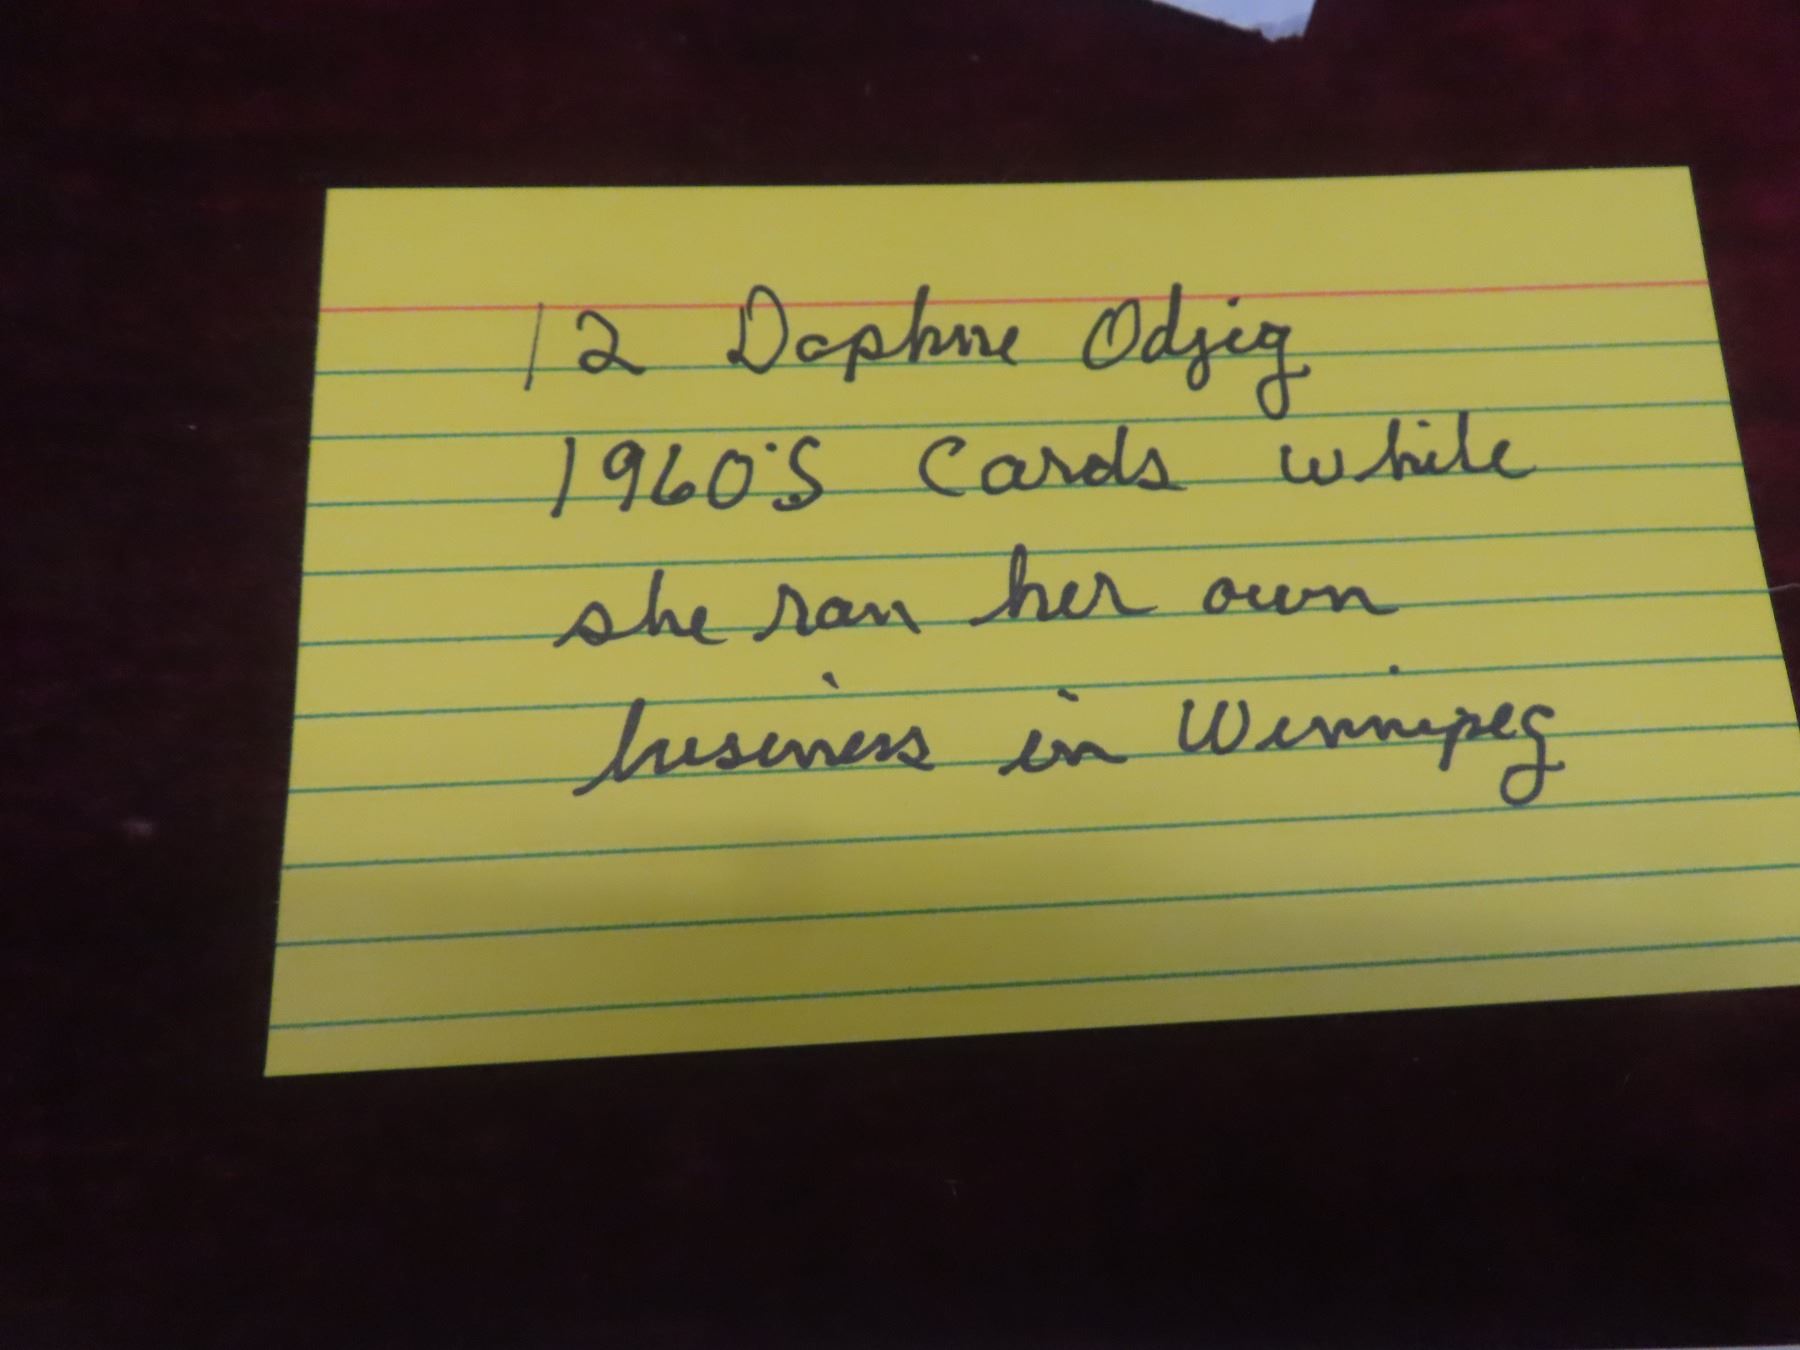 12 Daphne Odjig
1960's Cards while
she ran her own
business in Winnipeg